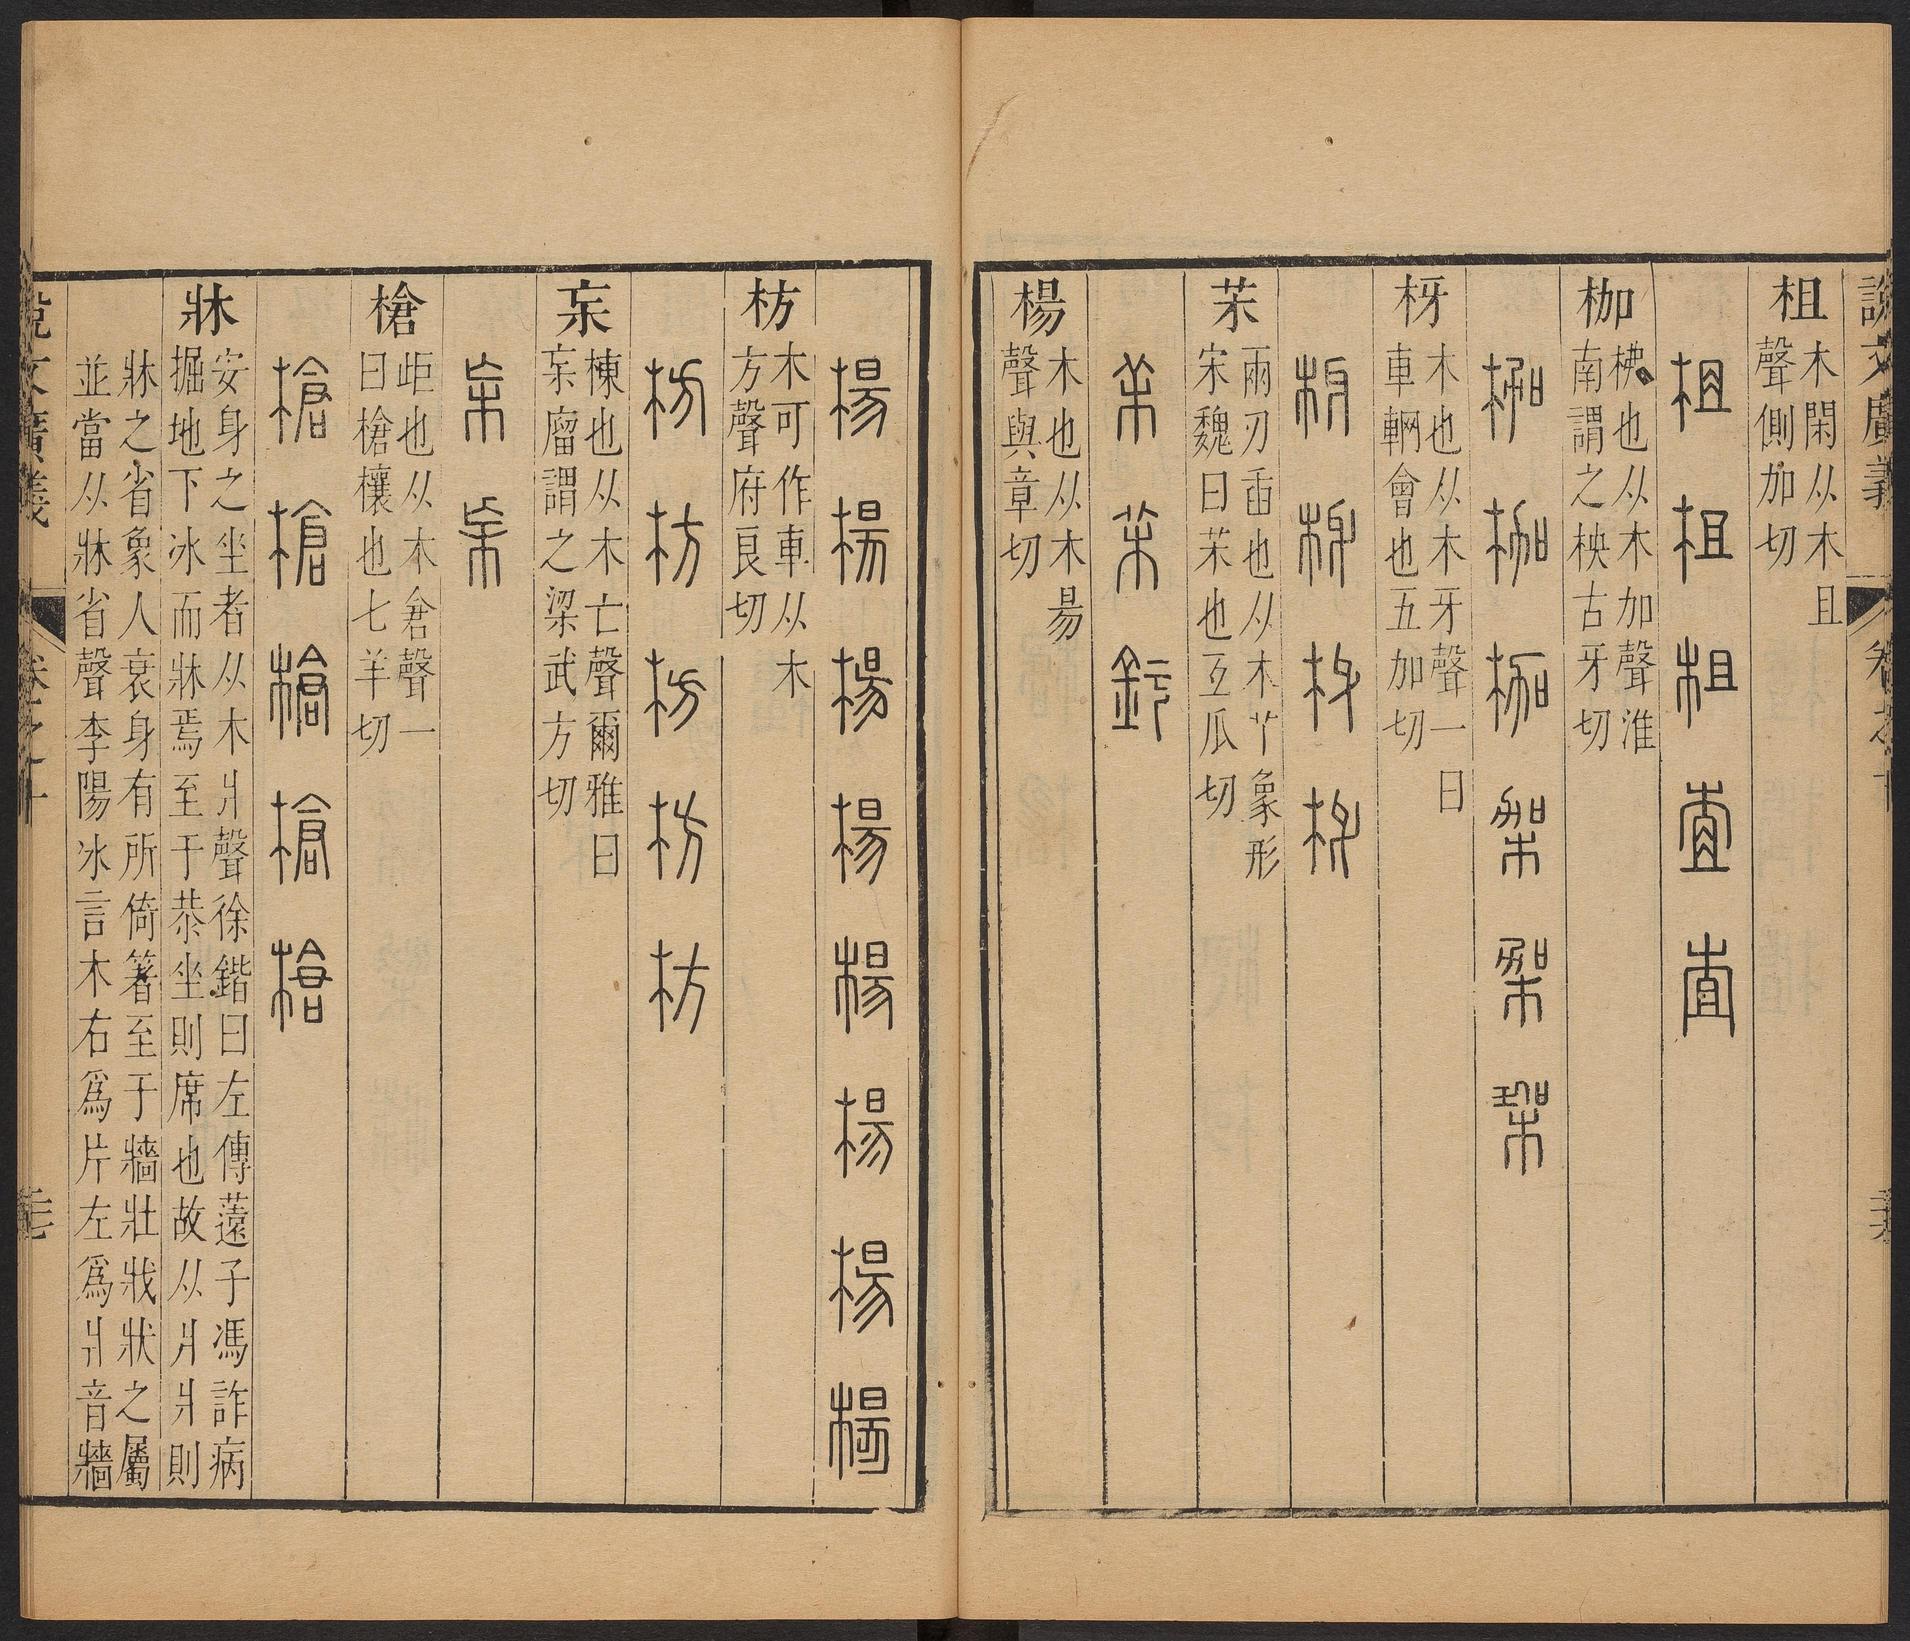 說文廣義
卷之十
柤
木閑从木且
聲側加切
柤柤柤査査
枷
梻也从木加聲淮
南謂之柍古牙切
枷枷枷架架架
枒
木也从木牙聲一曰
車輞會也五加切
枒枒枒枒
枼
兩刃臿也从木𠂉象形
宋魏曰枼也互瓜切
楊
木也从木昜
聲與章切
楊楊楊楊楊楊楊楊
枋
木可作車从木
方聲府良切
枋枋枋枋枋
杗
棟也从木亡聲爾雅曰
杗廇謂之梁武方切
杗杗
槍
歫也从木倉聲一
曰槍欀也七羊切
槍槍槍槍槍
牀
安身之坐者从木爿聲徐鍇曰左傳薳子馮詐病
掘地下冰而牀焉至于恭坐則席也故从爿爿則
牀之省象人衺身有所倚箸至于牆壯戕狀之屬
並當从牀省聲李陽冰言木右爲片左爲爿音牆
說文廣義
卷之十